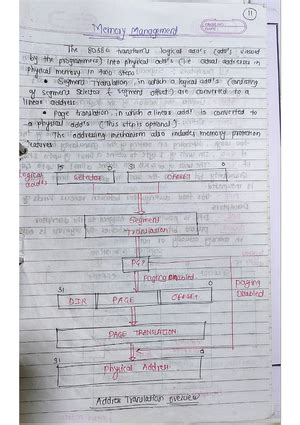 11
Memory Management
The 80386 transforms logical add's (add's viewed
by the programmers) into physical add's (the actual addresses in
physical memory in two steps:
• Segment Translation, in which a logical add's (consisting
of segment selector & segment offset) are converted to a
linear address.
• Page translation, in which a linear add's is converted to
a physical add's (This step is optional).
The addressing mechanism also includes memory protection
features.
15 0 31 0
logical
add's
Selector
OFFSET
Segment
Translation
PG?
Paging Enabled
Paging
Disabled
31 0
DIR PAGE OFFSET
PAGE TRANSLATION
31 0
Physical Address
Address Translation overview